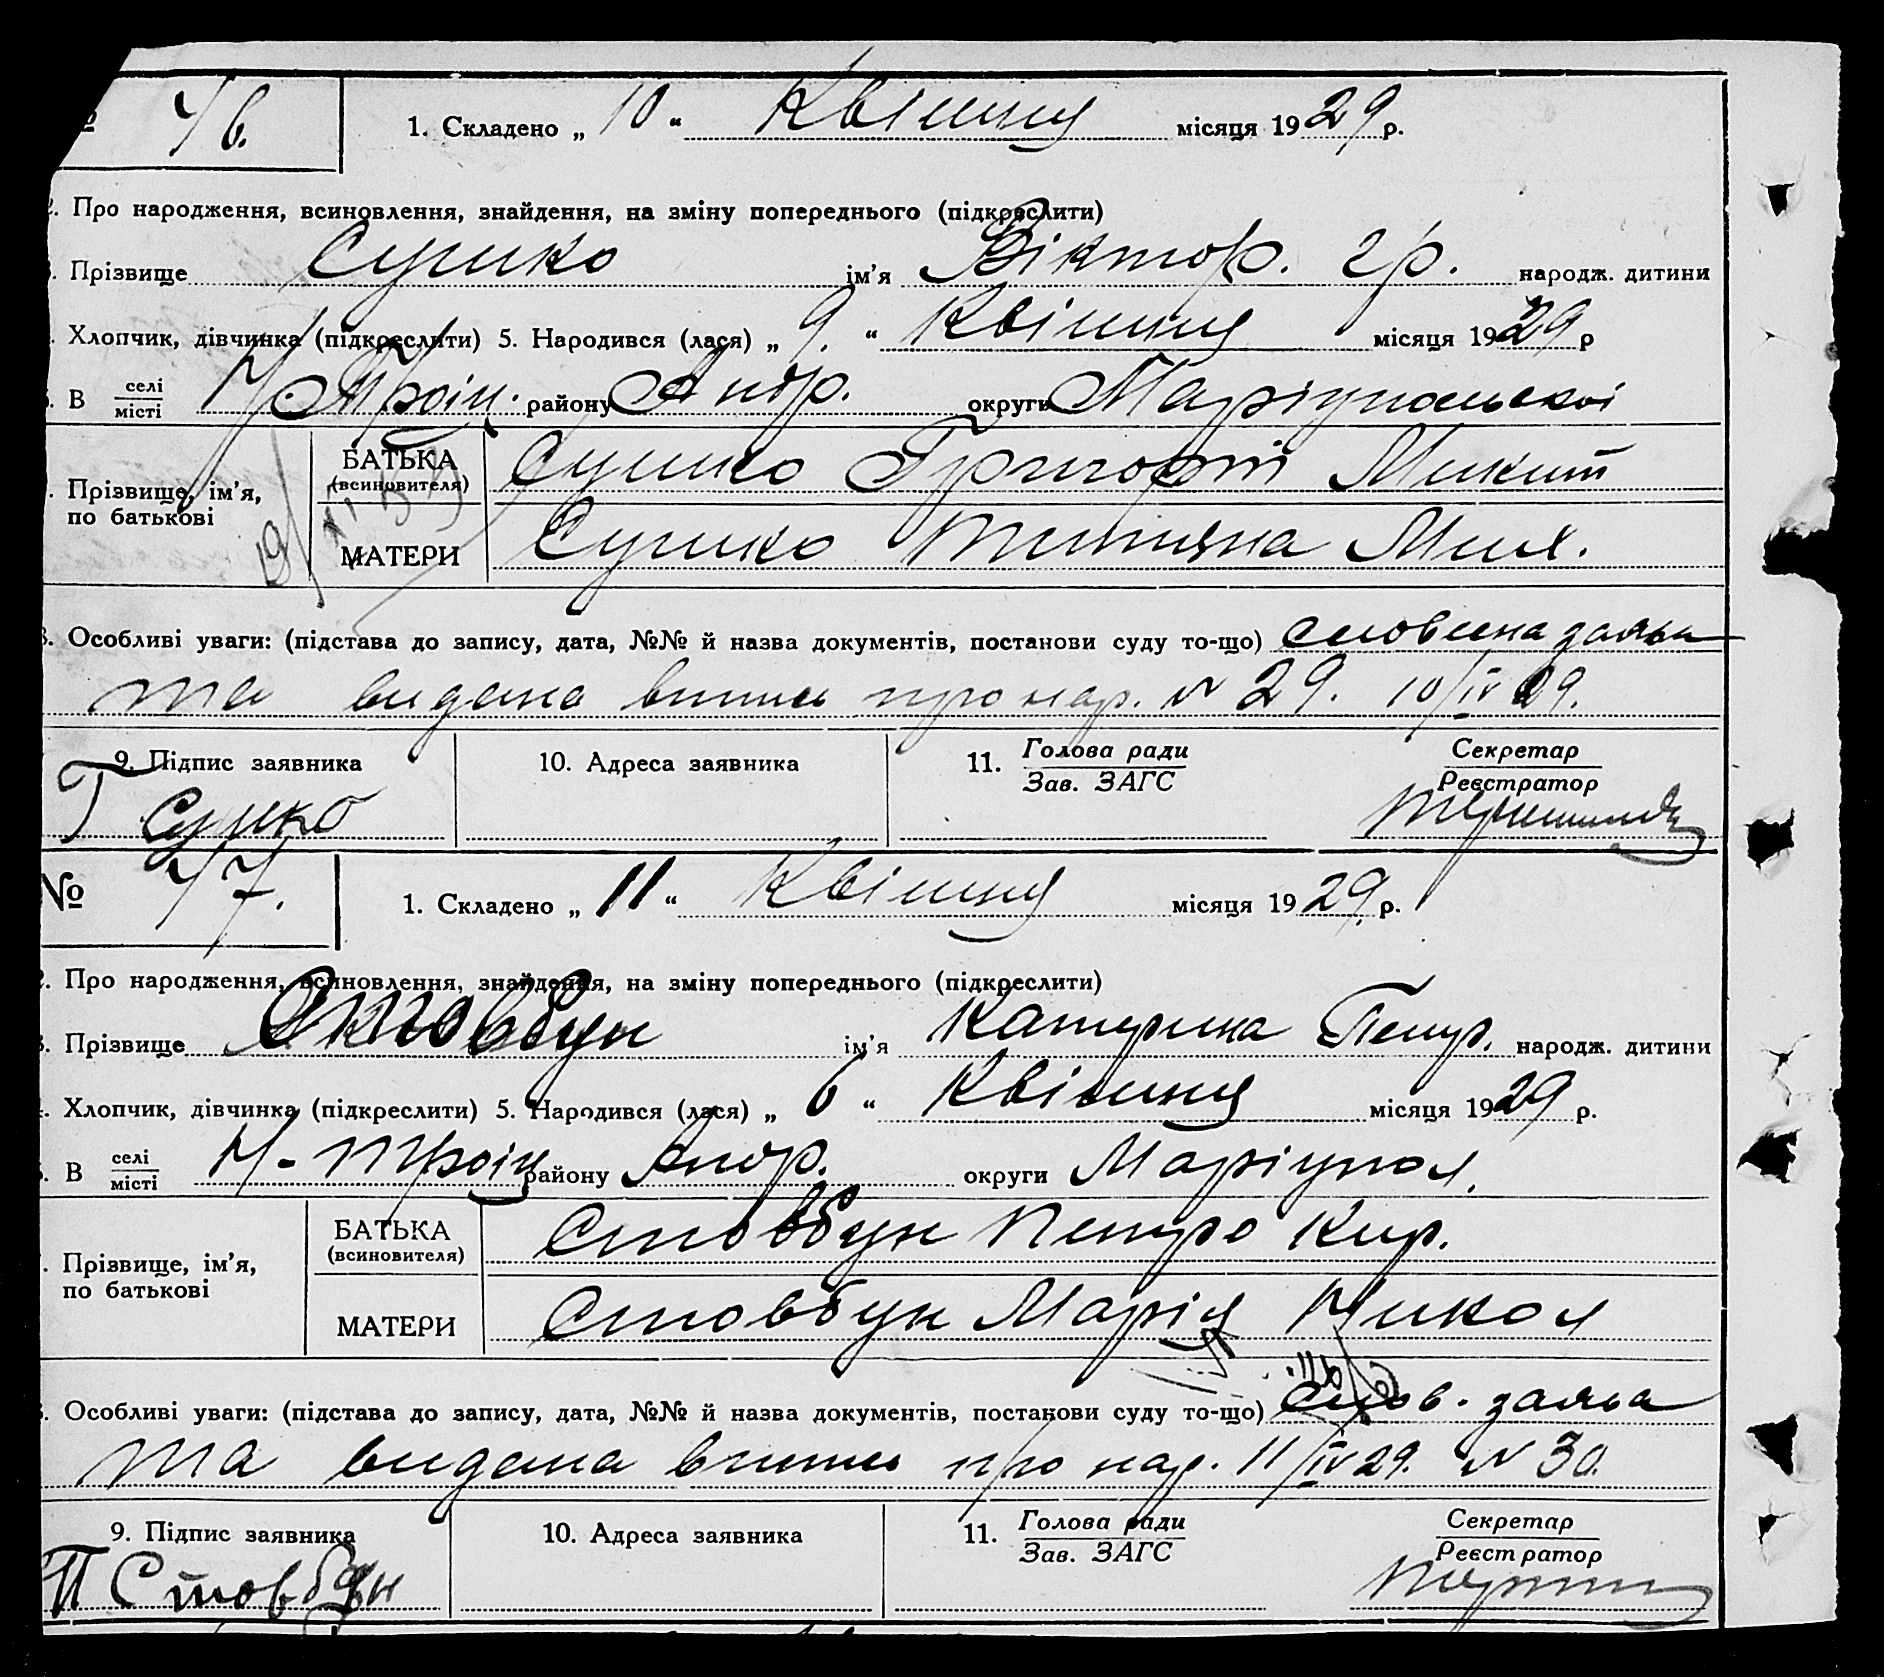 № 76.
1. Складено „ 10 “ Квітня місяця 1929 р.
2. Про народження, всиновлення, знайдення, на зміну попереднього (підкреслити)
Прізвище Сушко ім’я Віктор. гр. народж. дитини
Хлопчик, дівчинка (підкреслити) 5. Народився (лася) „ 9. “ Квітня місяця 1929 р
В селі місті Н-Троіц. району Андр. округи Маріупольскоі
Прізвище, ім’я, по батькові
БАТЬКА (всиновителя) Сушко Григорій Микит
МАТЕРИ Сушко Титяна Мих.
8. Особливі уваги: (підстава до запису, дата, №№ й назва документів, постанови суду то-що) словесна заява
та видана випис про нар. N 29. 10/IV 29.
9. Підпис заявника 10. Адреса заявника 11. Голова ради Зав. ЗАГС Секретар Реєстратор
Г Сушко
№ 77.
1. Складено „ 11 “ Квітня місяця 1929 р.
2. Про народження, всиновлення, знайдення, на зміну попереднього (підкреслити)
3. Прізвище Стовбун ім’я Катерина Петр. народж. дитини
4. Хлопчик, дівчинка (підкреслити) 5. Народився (лася) „ 6 “ Квітня місяця 1929 р.
В селі місті Н-Троіц району Андр. округи Маріупол.
Прізвище, ім’я, по батькові
БАТЬКА (всиновителя) Стовбун Петро Кир.
МАТЕРИ Стовбун Марія Никол
Особливі уваги: (підстава до запису, дата, №№ й назва документів, постанови суду то-що) слов. заява
та видана випис про нар. 11/IV 29. N 30.
9. Підпис заявника 10. Адреса заявника 11. Голова ради Зав. ЗАГС Секретар Реєстратор
П Стовбун